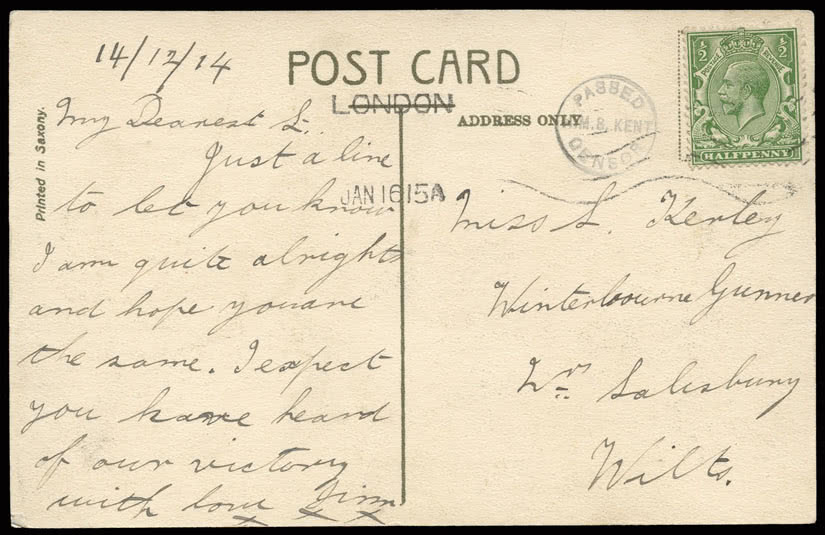 14/12/14
POST CARD
LONDON
ADDRESS ONLY
PASSED
H.M.B. KENT
CENSOR
½ POSTAGE REVENUE ½
HALFPENNY
Printed in Saxony.
JAN 16 15 A
My Dearest L.
Just a line
to let you know
I am quite alright
and hope you are
the same. I expect
you have heard
of our victory
with love Jim
x x x
Miss L. Kerley
Winterbourne Gunner
Nr Salisbury
Wilts.